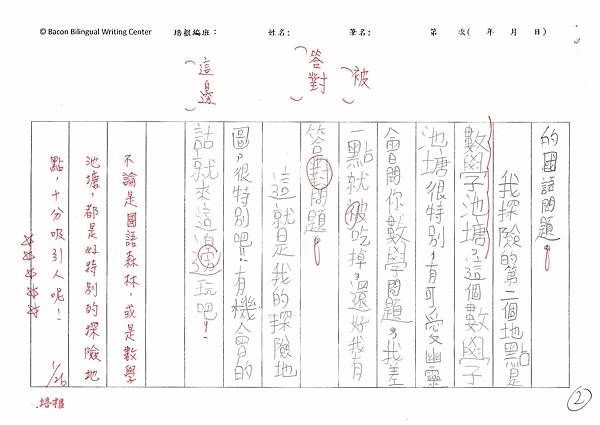 © Bacon Bilingual Writing Center 培根編班： 姓名： 筆名： 第 次( 年 月 日)
被
答對
這邊
的國語問題。
我探險的第二個地點是
數學池塘，這個數學
池塘很特別，有可愛幽靈
會問你數學問題，我差
一點就被吃掉，還好我有
答對問題。
這就是我的探險地
圖，很特別吧！有機會的
話就來這邊玩吧！
不論是國語森林，或是數學
池塘，都是好特別的探險地
點，十分吸引人呢！
1/26
培根
2